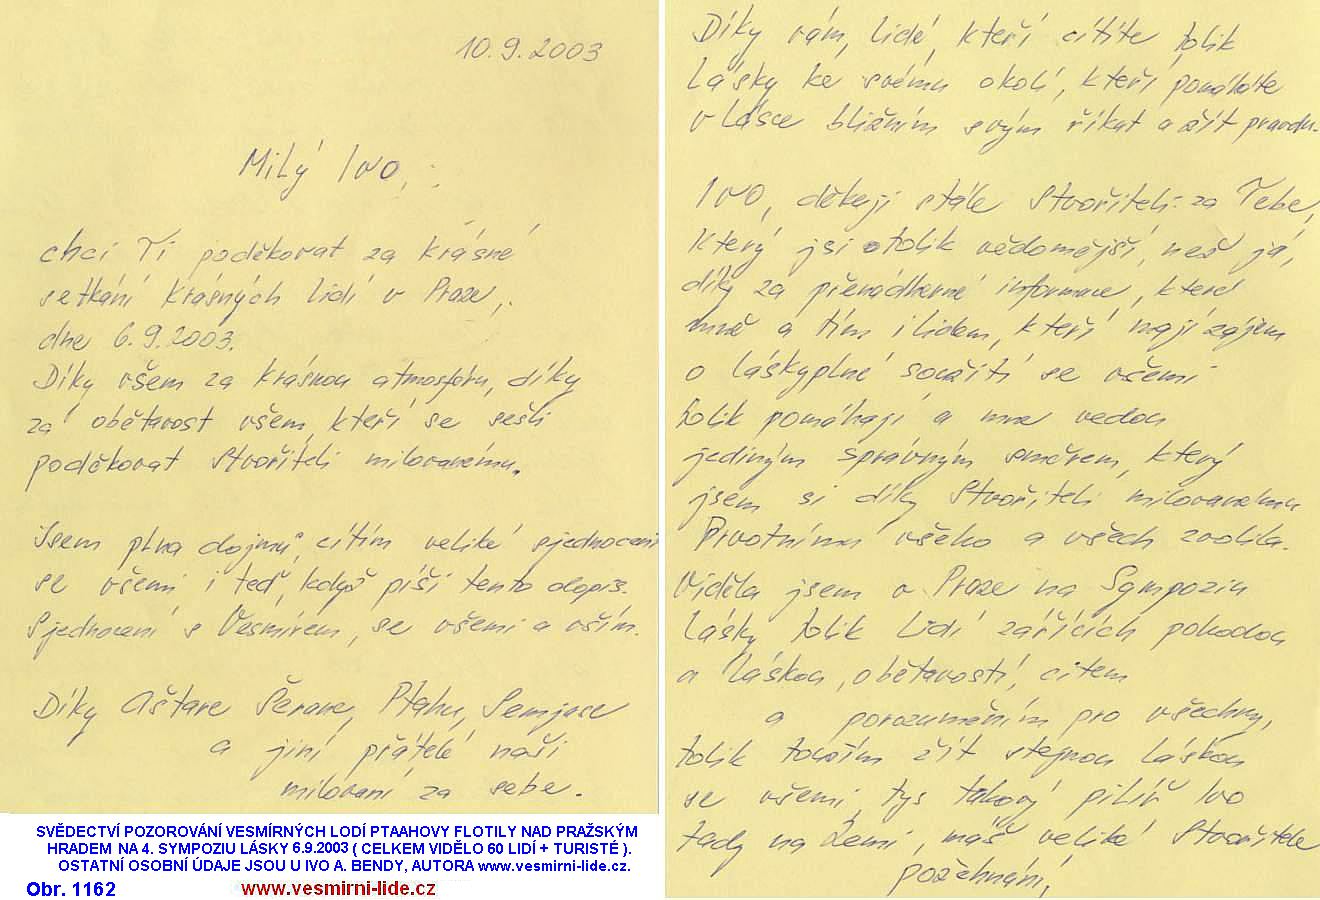 10.9.2003
Milý Ivo,
chci Ti poděkovat za krásné
setkání krásných lidí v Praze,
dne 6.9.2003.
Díky všem za krásnou atmosféru, díky
za obětavost všem, kteří se sešli
poděkovat Stvořiteli milovanému.
Jsem plna dojmů, cítím veliké sjednocení
se všemi i teď, když píši tento dopis.
Sjednocení s Vesmírem, se všemi a vším.
Díky Aštare Šerane, Ptahu, Semjase
a jiní přátelé naši
milovaní za sebe.
SVĚDECTVÍ POZOROVÁNÍ VESMÍRNÝCH LODÍ PTAAHOVY FLOTILY NAD PRAŽSKÝM
HRADEM NA 4. SYMPOZIU LÁSKY 6.9.2003 ( CELKEM VIDĚLO 60 LIDÍ + TURISTÉ ).
OSTATNÍ OSOBNÍ ÚDAJE JSOU U IVO A. BENDY, AUTORA www.vesmirni-lide.cz.
Obr. 1162
www.vesmirni-lide.cz
Díky vám, lidé, kteří cítíte tolik
lásky ke svému okolí, kteří pomáháte
v lásce bližním svým říkat a žít pravdu.
Ivo, děkuji stále Stvořiteli za Tebe,
který jsi o tolik vědomější, než já,
díky za přenádherné informace, které
mně a tím i lidem, kteří mají zájem
o láskyplné soužití se všemi
tolik pomáhají a mne vedou
jediným správným směrem, který
jsem si díky Stvořiteli milovanému
Prvotnímu všeho a všech zvolila.
Viděla jsem v Praze na Sympoziu
lásky tolik lidí zářících pohodou
a láskou, obětavostí, citem
a porozuměním pro všechny,
tolik toužím žít stejnou láskou
se všemi, tys takový pilíř Ivo
tady na Zemi, máš veliké Stvořitele
požehnání,